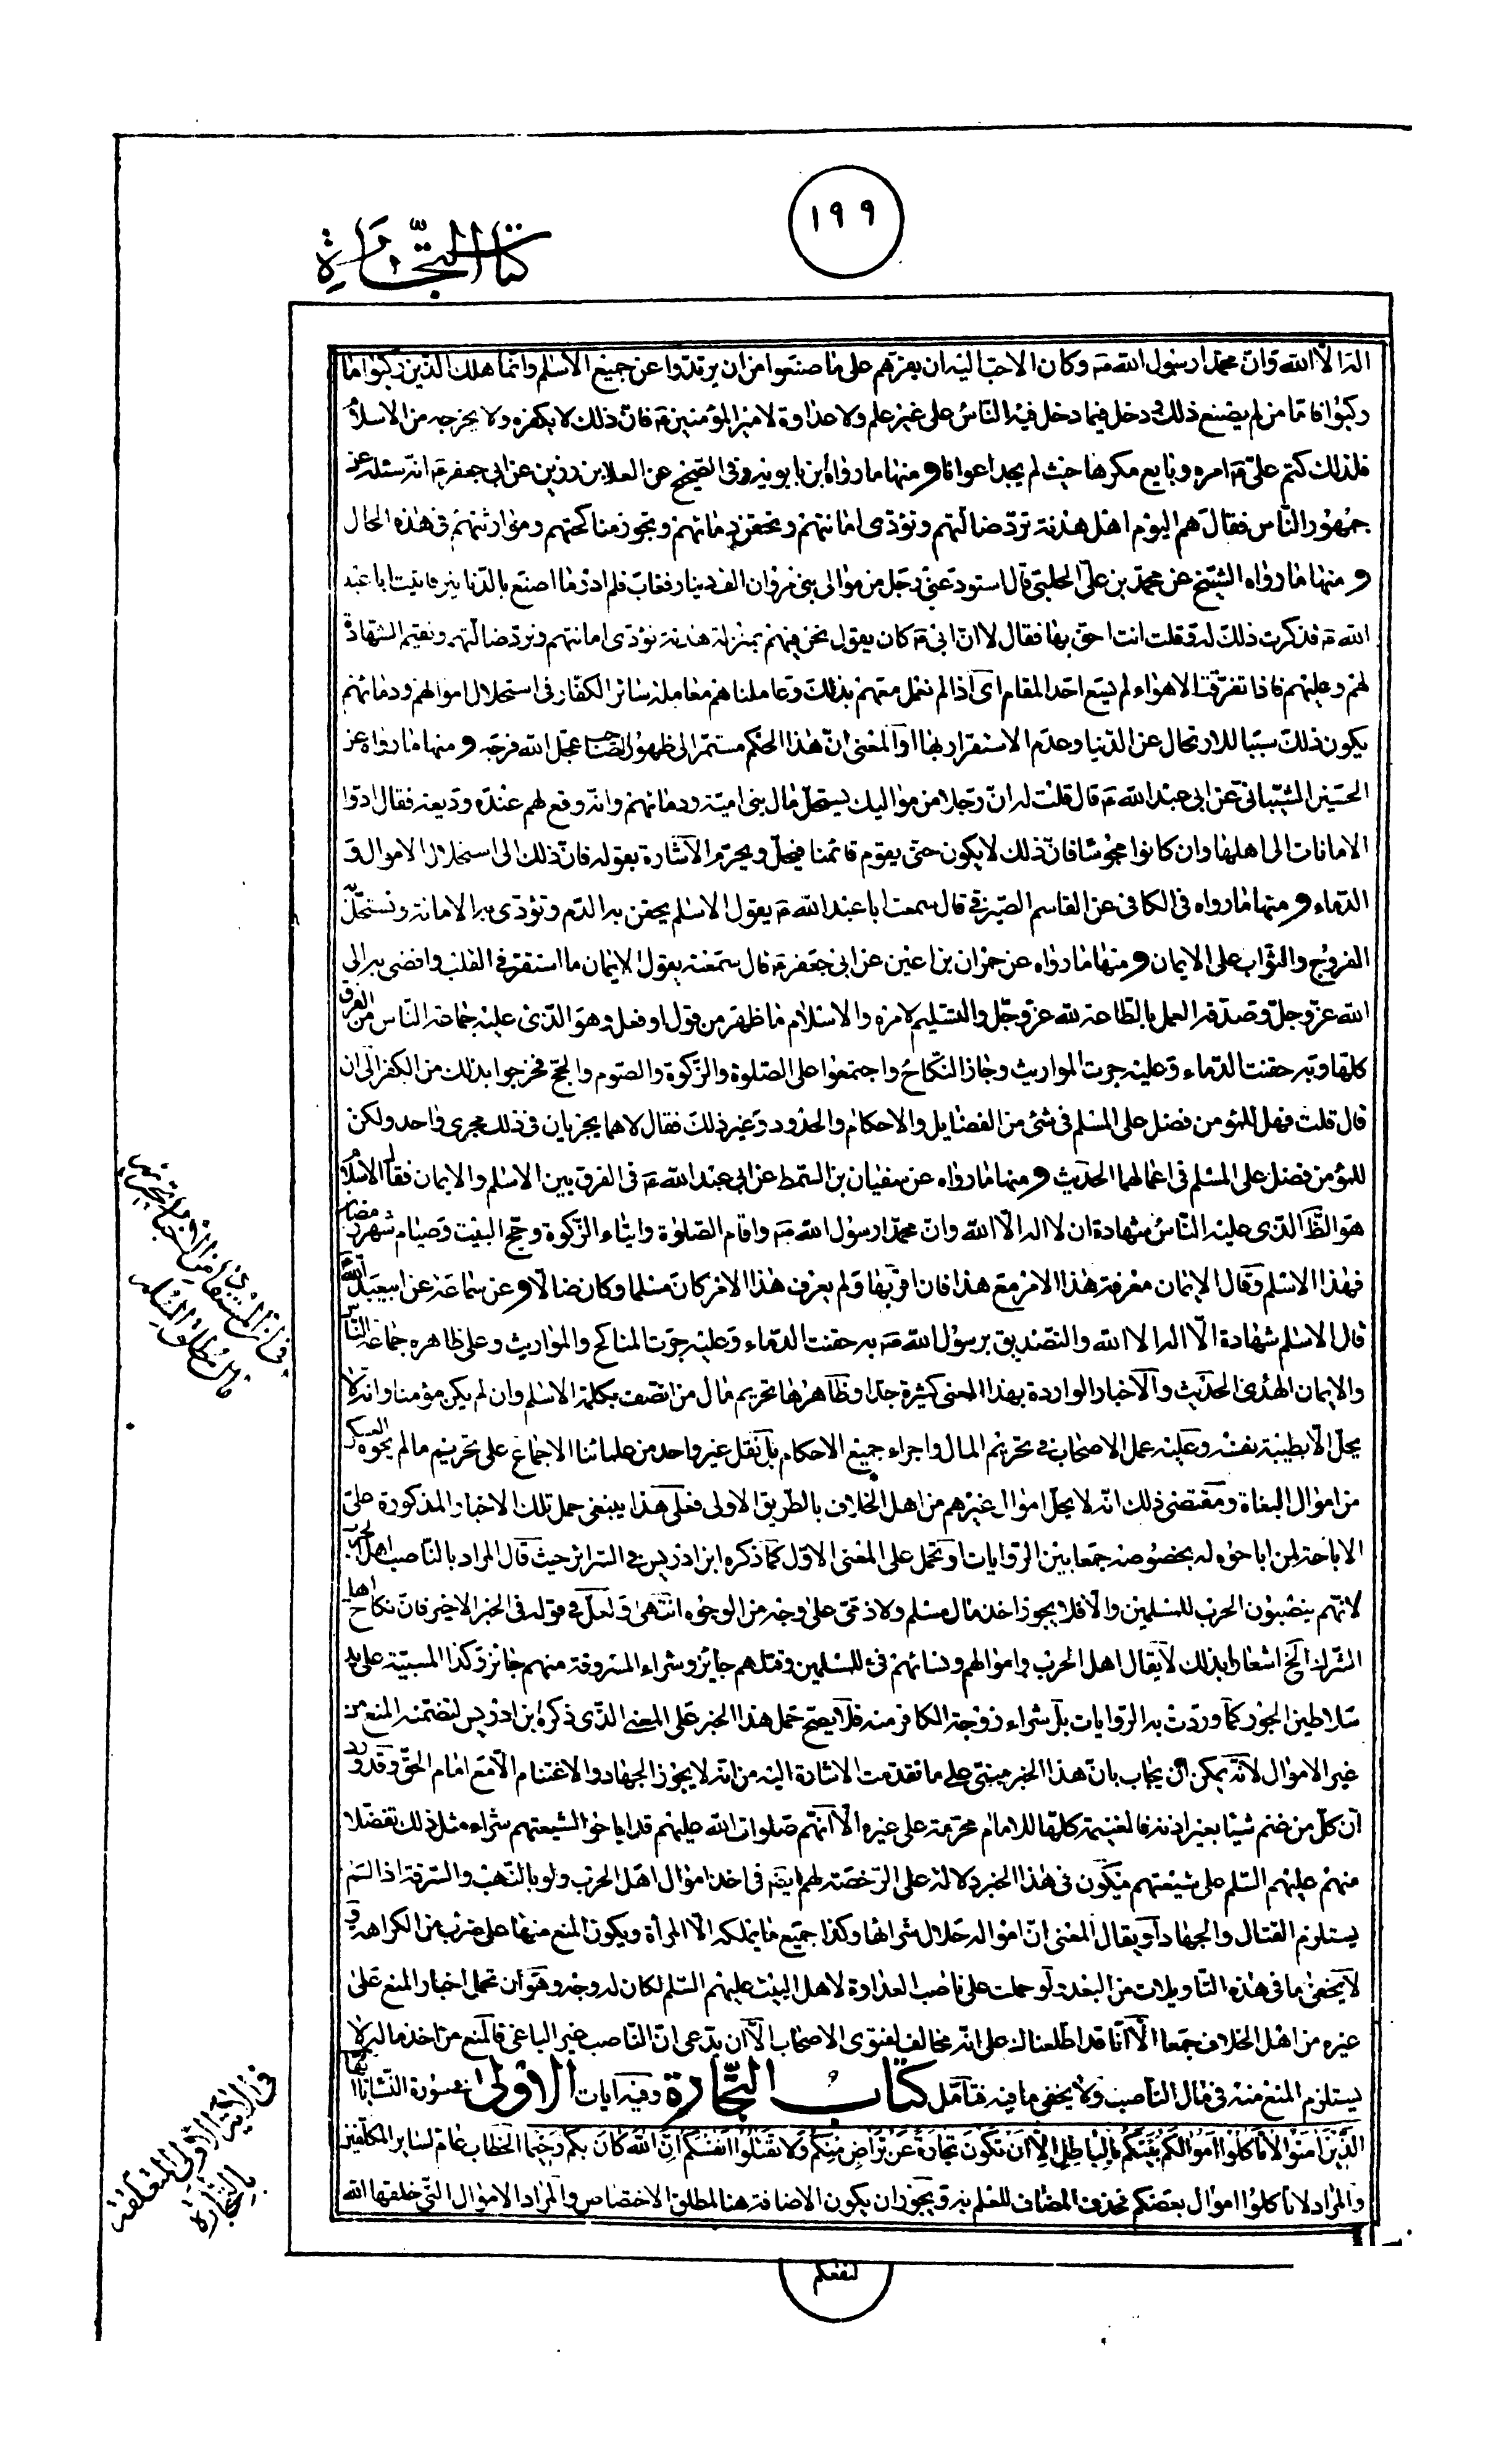 ١٩٩
كتاب التجارة
اله الا الله وان محمدا رسول الله ص وكان الاحب اليه ان يقرهم على ما صنعوا من ان يرتدوا عن جميع الاسلم وانما هلك الذين ركبوا ما
ركبوا فاما من لم يصنع ذلك ودخل فيما دخل فيه الناس على غير علم ولا عداوة لامير المؤمنين ع فان ذلك لا يكفره ولا يخرجه من الاسلام
فلذلك كتم علي ع امره وبايع مكرها حيث لم يجد اعوانا ومنها ما رواه ابن بابويه في الصحيح عن العلا بن رزين عن ابي جعفر ع انه سئله عن
جمهور الناس فقال هم اليوم اهل هدنة ترد ضالتهم وتؤدى امانتهم وتحقن دمائهم وتجوز مناكحتهم وموارثتهم في هذه الحال
ومنها ما رواه الشيخ عن محمد بن علي الحلبي قال استودعني رجل من موالى بني مروان الف دينار فغاب فلم ادر ما اصنع بالدنانير فاتيت ابا عبد
الله ع فذكرت ذلك له وقلت انت احق بها فقال لا ان ابي ع كان يقول نحن فيهم بمنزلة هدنة نؤدى امانتهم ونرد ضالتهم ونقيم الشهادة
لهم وعليهم فاذا تفرقت الاهواء لم يسع احد المقام اى اذا لم نعمل معهم بذلك وعاملناهم معاملة سائر الكفار فى استحلال اموالهم ودمائهم
يكون ذلك سببا للارتحال عن الدنيا وعدم الاستقرار بها او المعنى ان هذا الحكم مستمر الى ظهور الصاحب عجل الله فرجه ومنها ما رواه عن
الحسين الشيبانى عن ابى عبد الله ع قال قلت له ان رجلا من مواليك يستحل مال بنى امية ودمائهم وانه وقع لهم عنده وديعة فقال ادوا
الامانات الى اهلها وان كانوا مجوسا فان ذلك لا يكون حتى يقوم قائمنا فيحل ويحرم الاشارة بقوله فان ذلك الى استحلال الاموال و
الدماء ومنها ما رواه فى الكافى عن القاسم الصيرفى قال سمعت ابا عبد الله ع يقول الاسلم يحقن به الدم وتؤدى به الامانة وتستحل
الفروج والثواب على الايمان ومنها ما رواه عن حمران بن اعين عن ابى جعفر ع قال سمعته يقول الايمان ما استقر فى القلب وافضى به الى
الله عز وجل وصدقه العمل بالطاعة لله عز وجل والتسليم لامره والاسلام ما ظهر من قول او فعل وهو الذى عليه جماعة الناس من الفرق
كلها وبه حقنت الدماء وعليه جرت المواريث وجاز النكاح واجتمعوا على الصلوة والزكوة والصوم والحج فخرجوا بذلك من الكفر الى ان
قال قلت فهل للمؤمن فضل على المسلم فى شئ من الفضايل والاحكام والحدود وغير ذلك فقال لا هما يجريان فى ذلك مجرى واحد ولكن
للمؤمن فضل على المسلم فى اعمالهما الحديث ومنها ما رواه عن سفيان بن السمط عن ابى عبد الله ع فى الفرق بين الاسلم والايمان فقال الاسلام
هو الظاهر الذى عليه الناس شهادة ان لا اله الا الله وان محمدا رسول الله ص واقام الصلوة وايتاء الزكوة وحج البيت وصيام شهر رمضان
فهذا الاسلم وقال الايمان معرفة هذا الامر مع هذا فان اقر بها ولم يعرف هذا الامر كان مسلما وكان ضالا وعن سماعة عن ابيعبد الله
قال الاسلم شهادة الا اله الا الله والتصديق برسول الله ص به حقنت الدماء وعليه جرت المناكح والمواريث وعلى ظاهره جماعة الناس
والايمان الهدى الحديث والاخبار الواردة بهذا المعنى كثيرة جدا وظاهرها تحريم مال من اتصف بكلمة الاسلم وان لم يكن مؤمنا وانه لا
يحل الا بطيبة نفسه وعليه عمل الاصحاب فى تحريم المال واجراء جميع الاحكام بل نقل غير واحد من علمائنا الاجماع على تحريم ما لم يحوه العسكر
من اموال البغاة ومقتضى ذلك انه لا يحل اموال غيرهم من اهل الخلاف بالطريق الاولى فعلى هذا ينبغى حمل تلك الاخبار المذكورة على
الاباحة لمن اباحوه له بخصوصه جمعا بين الروايات او تحمل على المعنى الاول كما ذكره ابن ادريس فى السرائر حيث قال المراد بالناصب اهل الحرب
لانهم ينصبون الحرب للمسلمين والا فلا يجوز اخذ مال مسلم ولا ذمى على وجه من الوجوه انتهى ولعل فى قوله فى الخبر الاخير فان نكاح اهل
الشرك الخ اشعارا بذلك لا يقال اهل الحرب واموالهم ونسائهم فئ للمسلمين وقتلهم جايز وشراء المسروقة منهم جائز وكذا المسبية على يد
سلاطين الجور كما وردت به الروايات بل شراء زوجة الكافر منه فلا يصح حمل هذا الخبر على المعنى الذى ذكره ابن ادريس لتضمنه المنع من
غير الاموال لانه يمكن ان يجاب بان هذا الخبر مبنى على ما تقدمت الاشارة اليه من انه لا يجوز الجهاد والاغتنام الا مع امام الحق وقد ورد
ان كل من غنم شيئا بغير اذنه فالغنيمة كلها للامام محرمة على غيره الا انهم صلوات الله عليهم قد اباحوا لشيعتهم شراء مثل ذلك تفضلا
منهم عليهم السلم على شيعتهم فيكون فى هذا الخبر دلالة على الرخصة لهم ايضا فى اخذ اموال اهل الحرب ولو بالنهب والسرقة اذا لم
يستلزم القتال والجهاد او يقال المعنى ان امواله حلال شرائها وكذا جميع ما يملكه الا المرأة ويكون المنع منها على ضرب من الكراهه و
لا يخفى ما فى هذه التاويلات من البعد ولو حملت على ناصب العداوة لاهل البيت عليهم السلم لكان له وجه وهو ان تحمل اخبار المنع على
غيره من اهل الخلاف جمعا الا انا قد اطلعناك على انه مخالف لفتوى الاصحاب الا ان يدعى ان الناصب غير الباغى فالمنع من اخذ ماله لا
يستلزم المنع منه فى مال الناصب ولا يخفى ما فيه فتامل كتاب التجارة وفيه ايات الاولى فى سورة النساء يا ايها
الذين امنوا لا تاكلوا اموالكم بينكم بالباطل الا ان تكون تجارة عن تراض منكم ولا تقتلوا انفسكم ان الله كان بكم رحيما الخطاب عام لساير المكلفين
والمراد لا تاكلوا اموال بعضكم فحذف المضاف للعلم به ويجوز ان يكون الاضافة هنا لمطلق الاختصاص والمراد الاموال التى خلقها الله
لنفعكم
فى الاية الاولى المتعلقة
بالتجارة